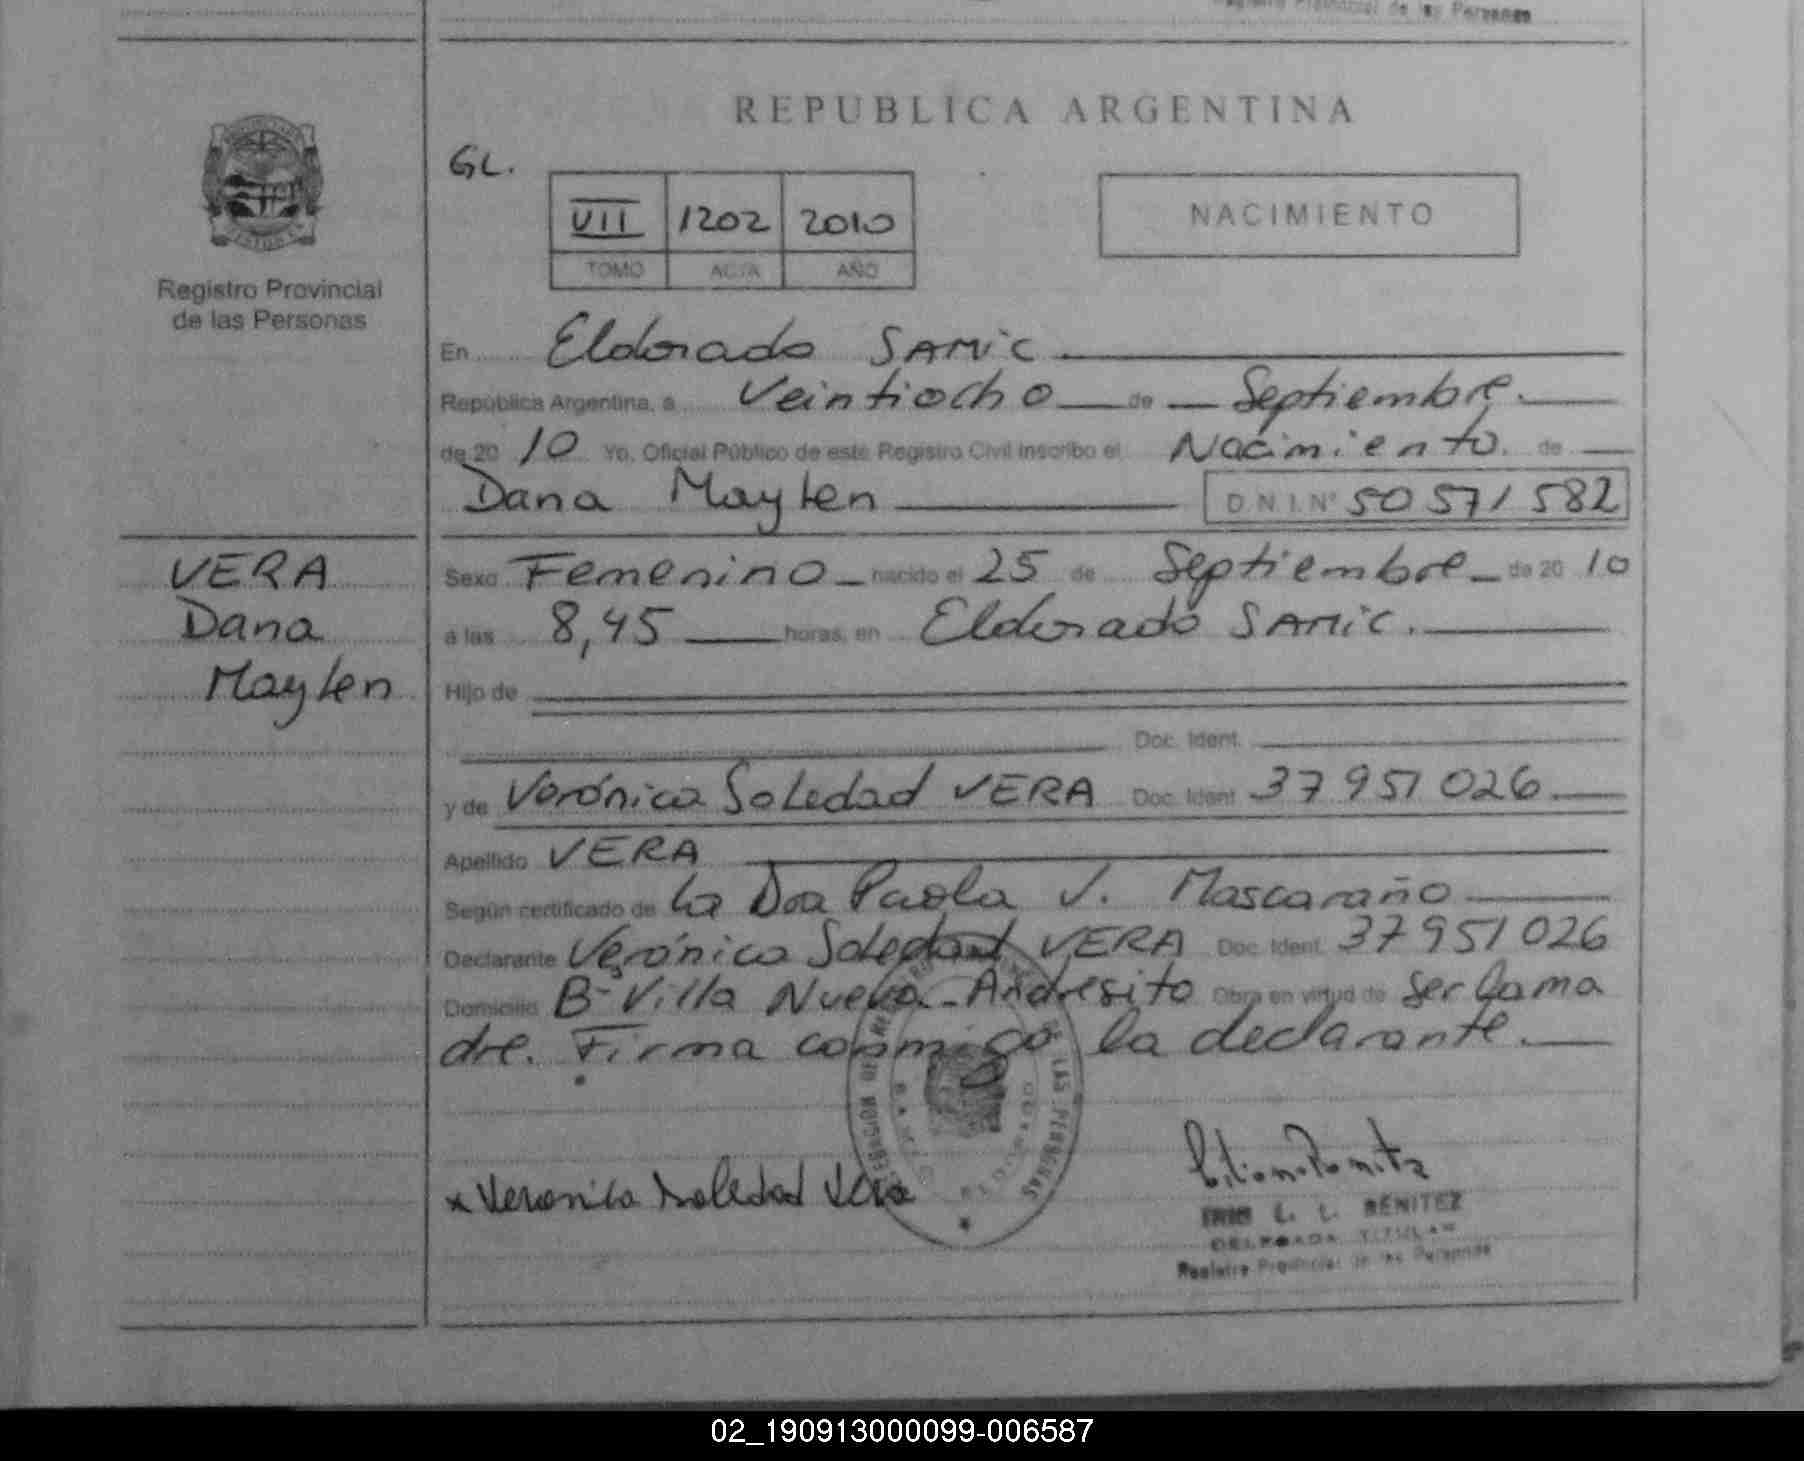 Registro Provincial de las Personas
REPUBLICA ARGENTINA
GL.
VII 1202 2010
TOMO ACTA AÑO
NACIMIENTO
Registro Provincial
de las Personas
En Eldorado SAMIC
República Argentina, a Veintiocho de Septiembre.
de 20 10 Yo, Oficial Público de este Registro Civil inscribo el Nacimiento. de
Dana Maylen D.N.I. Nº 50 571 582
VERA
Dana
Maylen
Sexo Femenino nacido el 25 de Septiembre de 20 10
a las 8,45 horas, en Eldorado SAMIC.
Hijo de
Doc. Ident.
y de Verónica Soledad VERA Doc. Ident. 37 951 026
Apellido VERA
Según certificado de La Dra Paola V. Mascaraño
Declarante Verónica Soledad VERA Doc. Ident. 37 951 026
Domicilio Bº Villa Nueva - Andresito Obra en virtud de ser la ma
dre. Firma conmigo la declarante.
x Veronica Soledad Vera
L. L. BENITEZ
DELEGADA TITULAR
Registro Provincial de las Personas
02_190913000099-006587